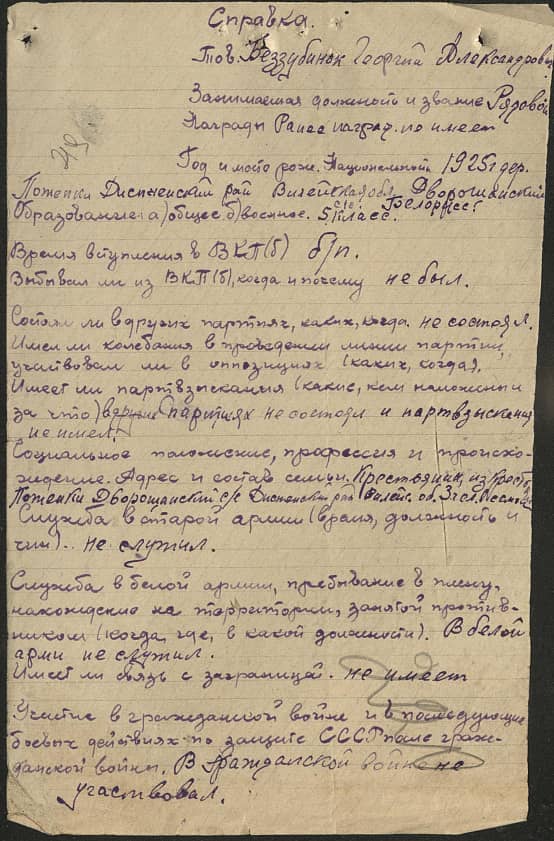 Справка.
Тов. Беззубинок Георгий Александрович
Занимаемая должность и звание Рядовой
Награды Ранее наград. не имеет
49
Год и место рожд. Национальность 1925г дер.
Потепки Дисненский рай Вилейская обл. Дворощанский
с/с. Белорусс.
Образование: а) общее б) военное. 5 класс.
Время вступления в ВКП(б) б/п.
Выбывал ли из ВКП(б), когда и почему не был.
Состоял ли в других партиях, каких, когда. не состоял.
Имел ли колебания в проведении линии партии,
участвовал ли в оппозициях (каких, когда).
Имеет ли партвзыскания (какие, кем наложены и
за что) в партиях не состоял и партвзыскания
не имел.
Социальное положение, профессия и происхо-
ждение. Адрес и состав семьи. Крестьянин, из крест.
Потепки Дворощанский с/с Дисненский рай Вилейс. об. 3 чел.
Служба в старой армии (время, должность и
чин). не служил.
Служба в белой армии, пребывание в плену,
нахождение на территории, занятой против-
ником (когда, где, в какой должности). В белой
арми не служил.
Имеет ли связь с заграницей. не имеет
Участие в гражданской войне и в последующие
боевых действиях по защите СССР после граж-
данской войны. В гражданской войне не
участвовал.